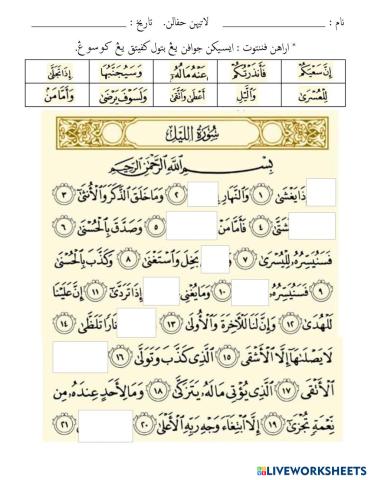 نام : ____________________ لاتيهن حفالن. تاريخ : ____________________
* اراهن ڤننتوت : ايسيكن جوافن يڠ بتول كفيتق يڠ كوسوڠ.
إِنَّ سَعْيَكُمْ فَأَنذَرْتُكُمْ عَنْهُ مَالُهُۥٓ وَسَيُجَنَّبُهَا إِذَا تَجَلَّىٰ
لِلْعُسْرَىٰ وَٱلَّيْلِ أَعْطَىٰ وَٱتَّقَىٰ وَلَسَوْفَ يَرْضَىٰ وَأَمَّا مَنۢ
سُورَةُ اللَّيْلِ
بِسْمِ ٱللَّهِ ٱلرَّحْمَٰنِ ٱلرَّحِيمِ
ذَا يَغْشَىٰ ١ وَٱلنَّهَارِ ٢ وَمَا خَلَقَ ٱلذَّكَرَ وَٱلْأُنثَىٰٓ ٣
شَتَّىٰ ٤ فَأَمَّا مَنْ ٥ وَصَدَّقَ بِٱلْحُسْنَىٰ ٦
فَسَنُيَسِّرُهُۥ لِلْيُسْرَىٰ ٧ بَخِلَ وَٱسْتَغْنَىٰ ٨ وَكَذَّبَ بِٱلْحُسْنَىٰ
٩ فَسَنُيَسِّرُهُۥ ١٠ وَمَا يُغْنِى إِذَا تَرَدَّىٰٓ ١١ إِنَّ عَلَيْنَا
لَلْهُدَىٰ ١٢ وَإِنَّ لَنَا لَلْءَاخِرَةَ وَٱلْأُولَىٰ ١٣ نَارًا تَلَظَّىٰ ١٤
لَا يَصْلَىٰهَآ إِلَّا ٱلْأَشْقَى ١٥ ٱلَّذِى كَذَّبَ وَتَوَلَّىٰ ١٦
ٱلْأَتْقَى ١٧ ٱلَّذِى يُؤْتِى مَالَهُۥ يَتَزَكَّىٰ ١٨ وَمَا لِأَحَدٍ عِندَهُۥ مِن
نِّعْمَةٍ تُجْزَىٰٓ ١٩ إِلَّا ٱبْتِغَآءَ وَجْهِ رَبِّهِ ٱلْأَعْلَىٰ ٢٠ ٢١
LIVEWORKSHEETS